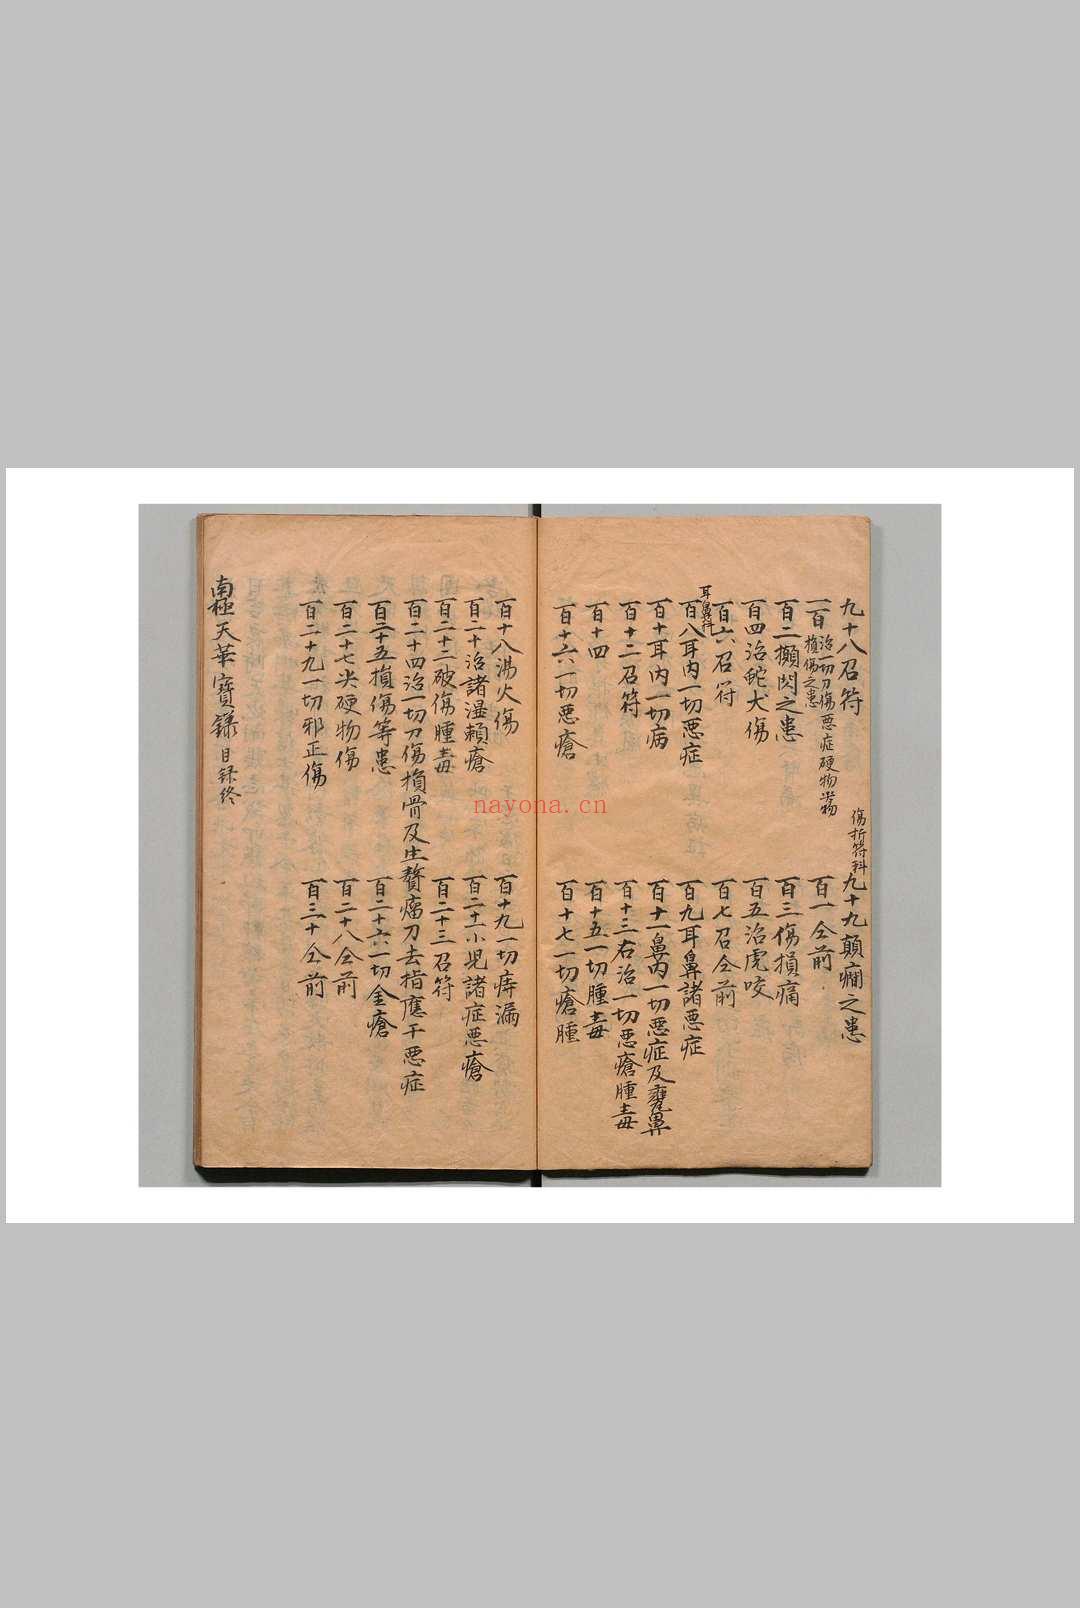 九十八召符
傷折符科
九十九顛癇之患
一百治一切刀傷惡症硬物岩物損傷之患
百一仝前
百二攧閃之患
百三傷損痛
百四治蛇犬傷
百五治虎咬
百六召符
百七召仝前
耳鼻科
百八耳內一切惡症
百九耳鼻諸惡症
百十耳內一切病
百十一鼻內一切惡症及齆鼻
百十二召符
百十三右治一切惡瘡腫毒
百十四
百十五一切腫毒
百十六一切惡瘡
百十七一切瘡腫
百十八湯火傷
百十九一切痔漏
百二十治諸濕頼瘡
百二十一小児諸症惡瘡
百二十二破傷腫毒
百二十三召符
百二十四治一切刀傷損骨及生贅瘤刀去指應干惡症
百二十五損傷等患
百二十六一切金瘡
百二十七尖硬物傷
百二十八仝前
百二十九一切邪正傷
百三十仝前
南極天華寶錄目録終
nayona.cn